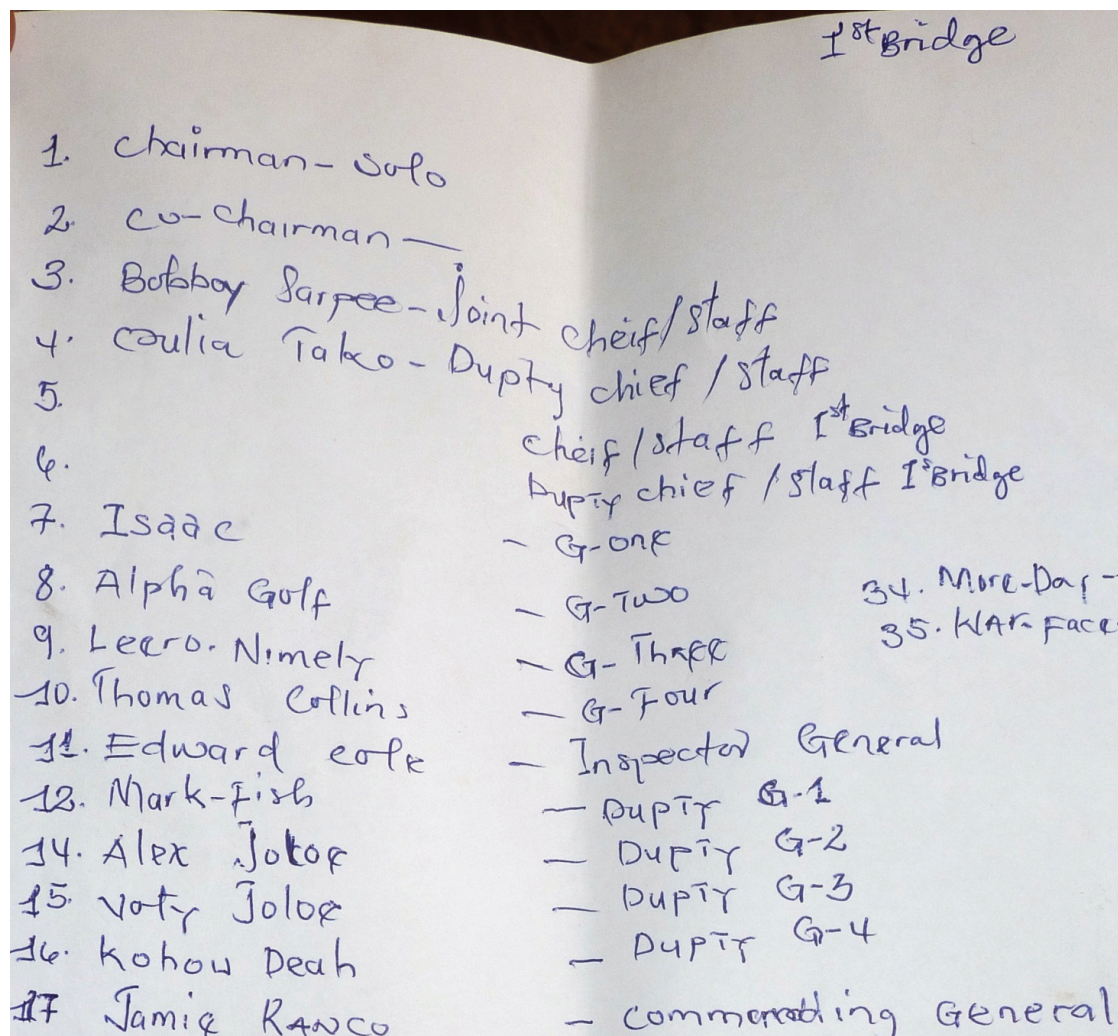 1st Bridge
1. Chairman - Solo
2. Co-Chairman —
3. Bobboy Sarpee - Joint Cheif/Staff
4. Coulia Tako - Dupty chief / Staff
5. Cheif / staff 1st Bridge
6. Dupty chief / Staff 1s Bridge
7. Isaac - G-one
8. Alpha Golf - G-Two
34. More-Day -
9. Leero. Nimely - G-Three
35. WAR-Face
10. Thomas Collins - G-Four
11. Edward cole - Inspector General
12. Mark-Fish - Dupty G-1
14. Alex Joloe - Dupty G-2
15. Voty Joloe - Dupty G-3
16. Kohou Deah - Dupty G-4
17 Jamie RANCO - commending General